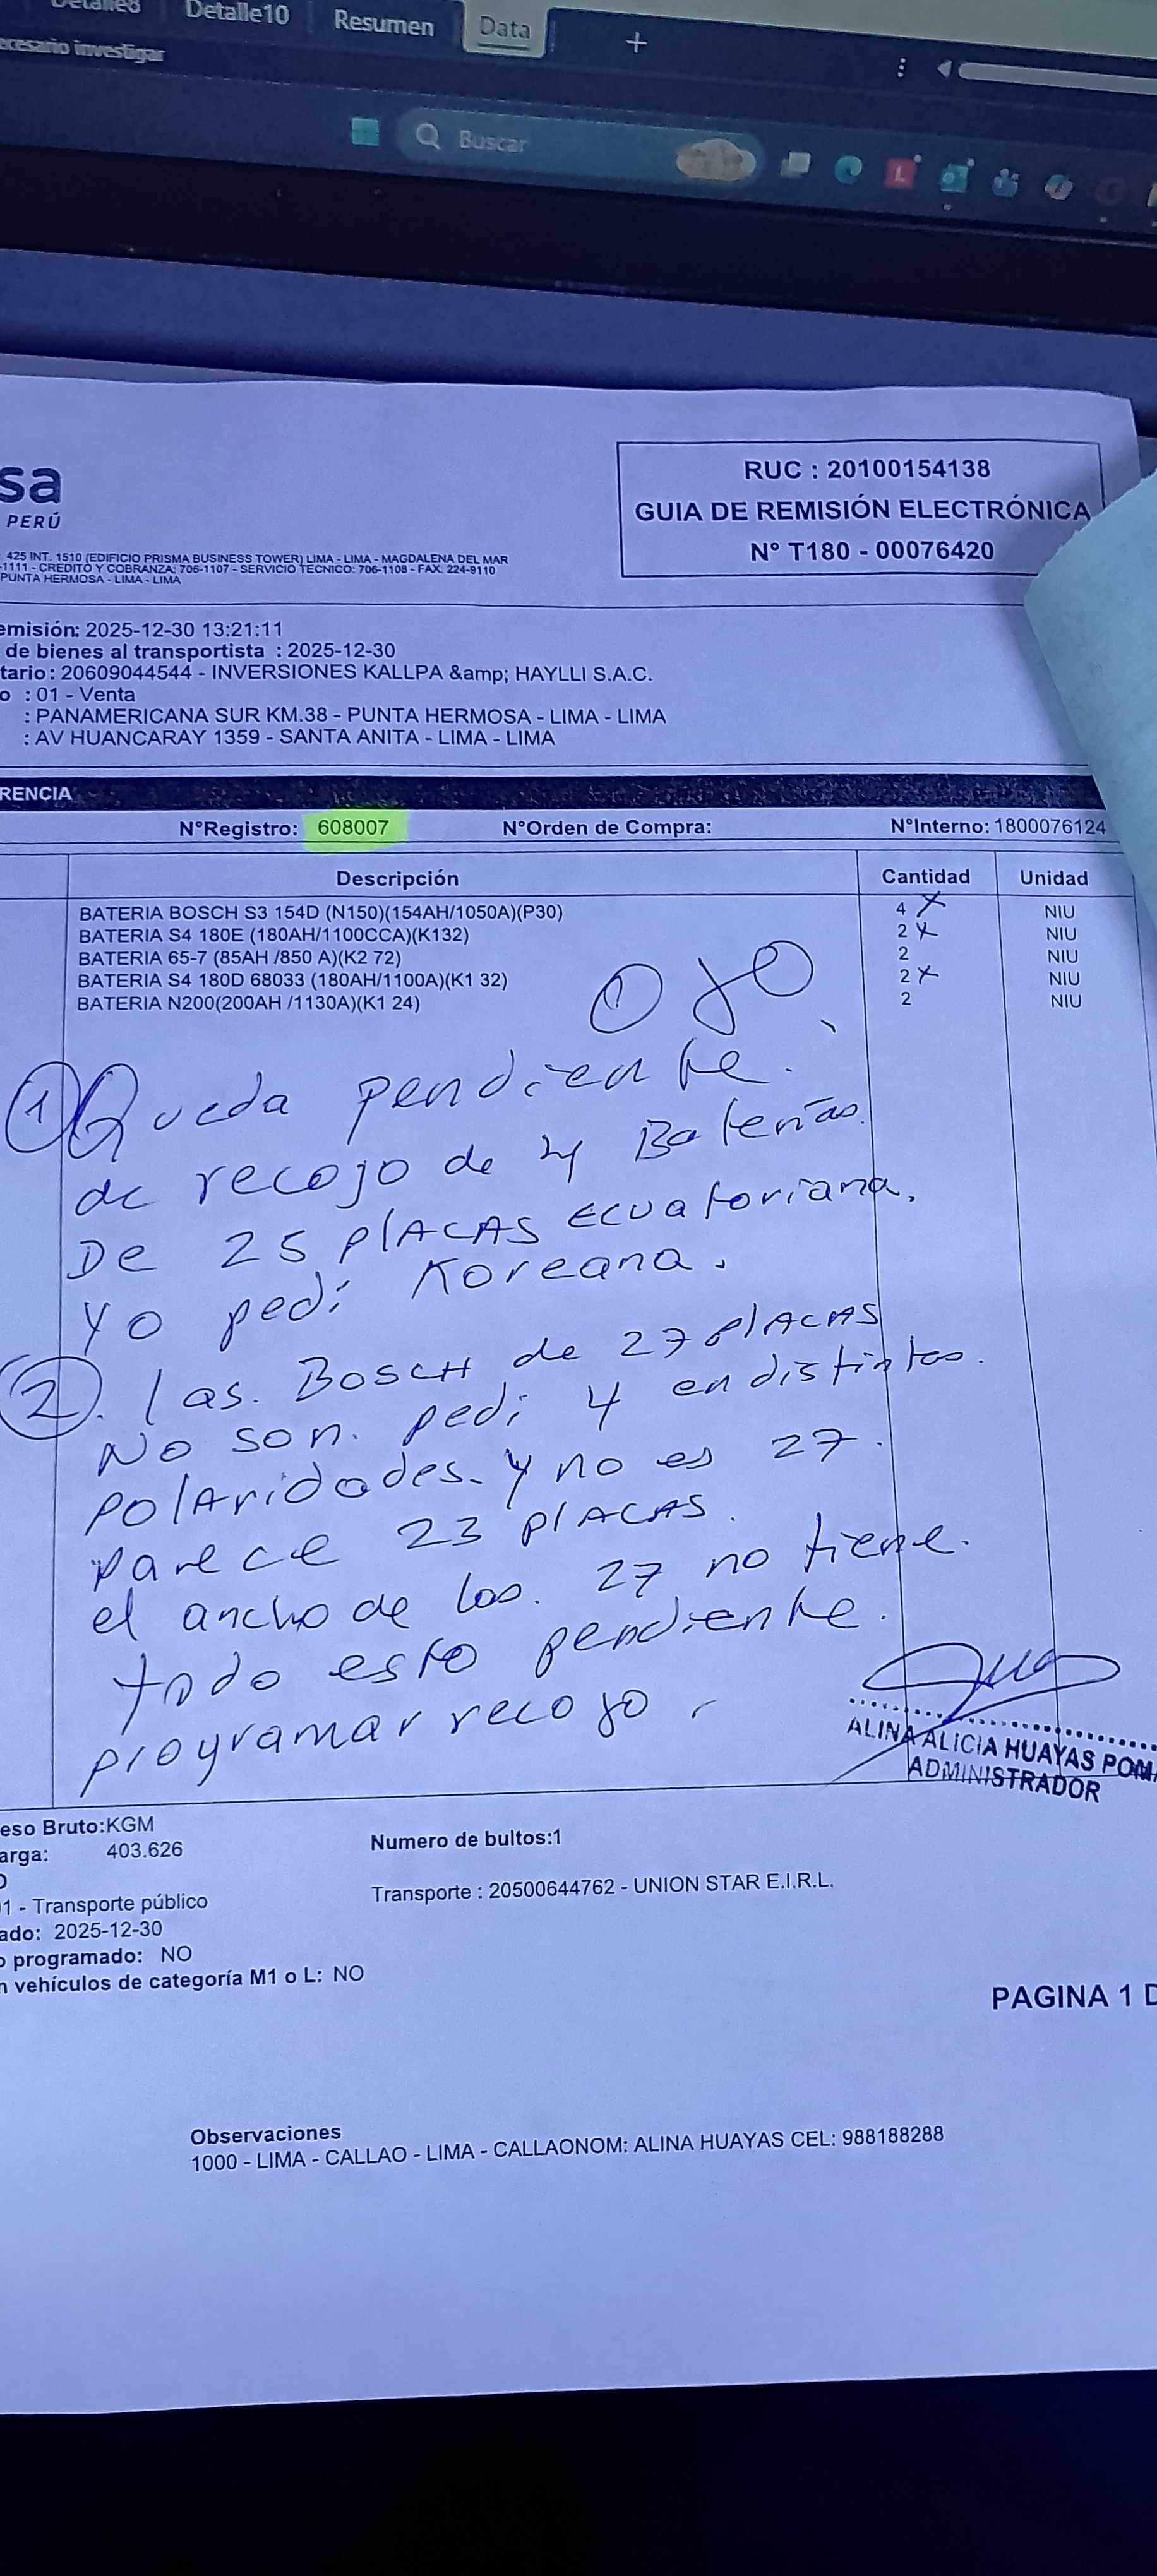 Detalle8 Detalle10 Resumen Data +
ecesario investigar
Buscar
L
sa
PERÚ
425 INT. 1510 (EDIFICIO PRISMA BUSINESS TOWER) LIMA - LIMA - MAGDALENA DEL MAR
-1111 - CREDITO Y COBRANZA: 706-1107 - SERVICIO TECNICO: 706-1108 - FAX. 224-9110
PUNTA HERMOSA - LIMA - LIMA
RUC : 20100154138
GUIA DE REMISIÓN ELECTRÓNICA
N° T180 - 00076420
emisión: 2025-12-30 13:21:11
de bienes al transportista : 2025-12-30
tario: 20609044544 - INVERSIONES KALLPA &amp; HAYLLI S.A.C.
o : 01 - Venta
: PANAMERICANA SUR KM.38 - PUNTA HERMOSA - LIMA - LIMA
: AV HUANCARAY 1359 - SANTA ANITA - LIMA - LIMA
RENCIA
N°Registro: 608007 N°Orden de Compra: N°Interno: 1800076124
Descripción Cantidad Unidad
BATERIA BOSCH S3 154D (N150)(154AH/1050A)(P30) 4 x NIU
BATERIA S4 180E (180AH/1100CCA)(K132) 2 x NIU
BATERIA 65-7 (85AH /850 A)(K2 72) 2 NIU
BATERIA S4 180D 68033 (180AH/1100A)(K1 32) 2 x NIU
BATERIA N200(200AH /1130A)(K1 24) 2 NIU
Ojo
1 Queda pendiente.
de recojo de 4 Baterías
De 25 placas Ecuatoriana.
yo pedi Koreana.
2. las. BOSCH de 27 placas
No son. pedi 4 en distintas.
polaridades. y no es 27.
parece 23 placas.
el ancho de las. 27 no tiene.
todo esto pendiente.
programar recojo.
ALINA ALICIA HUAYAS POMA
ADMINISTRADOR
eso Bruto:KGM
arga: 403.626
Numero de bultos:1
O
1 - Transporte público
Transporte : 20500644762 - UNION STAR E.I.R.L.
ado: 2025-12-30
o programado: NO
n vehículos de categoría M1 o L: NO
PAGINA 1 D
Observaciones
1000 - LIMA - CALLAO - LIMA - CALLAONOM: ALINA HUAYAS CEL: 988188288